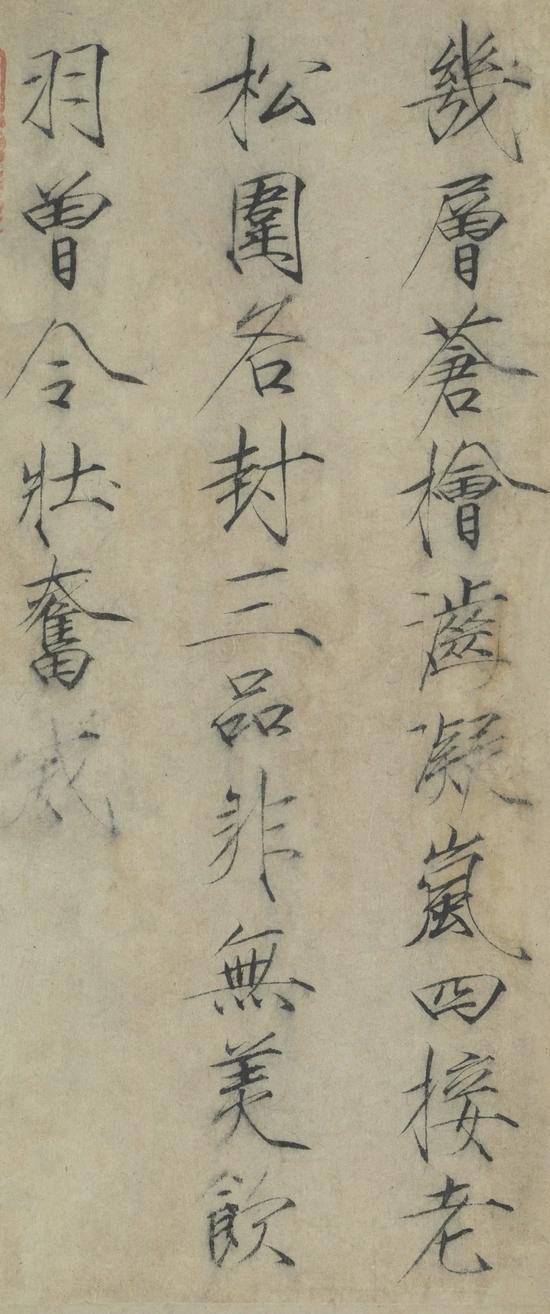 幾層蒼檜靄凝嵐四接老
松圍各封三品非無美飲
羽曾令壯奮威